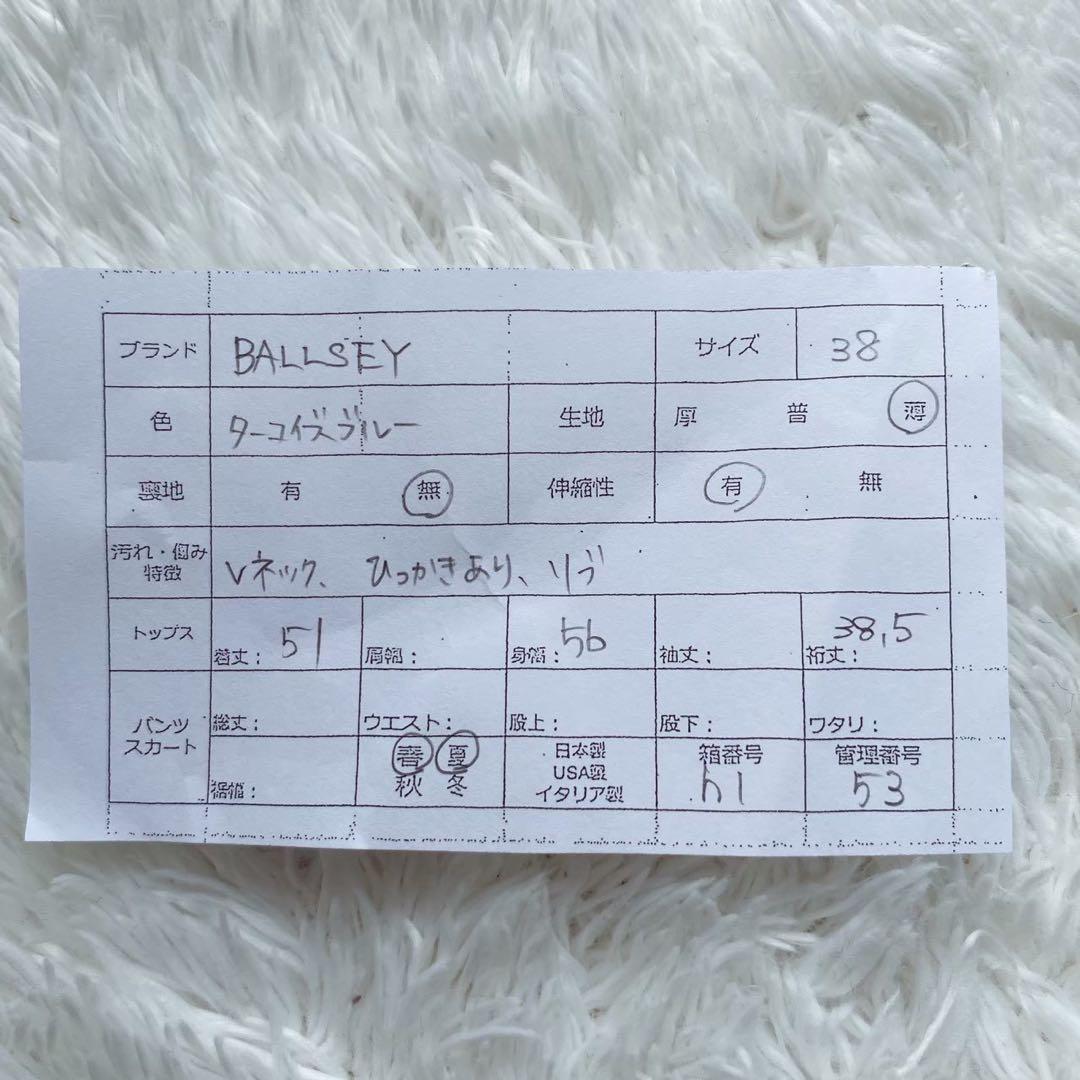 ブランド BALLSEY サイズ 38
色 ターコイズブルー 生地 厚 普 薄
裏地 有 無 伸縮性 有 無
汚れ・傷み
特徴 Vネック、ひっかきあり、リブ
トップス 着丈： 51 肩幅： 身幅： 56 袖丈： 裄丈： 38,5
パンツ
スカート
総丈： ウエスト： 股上： 股下： ワタリ：
裾幅：
春 夏
秋 冬
日本製
USA製
イタリア製
箱番号
管理番号
53